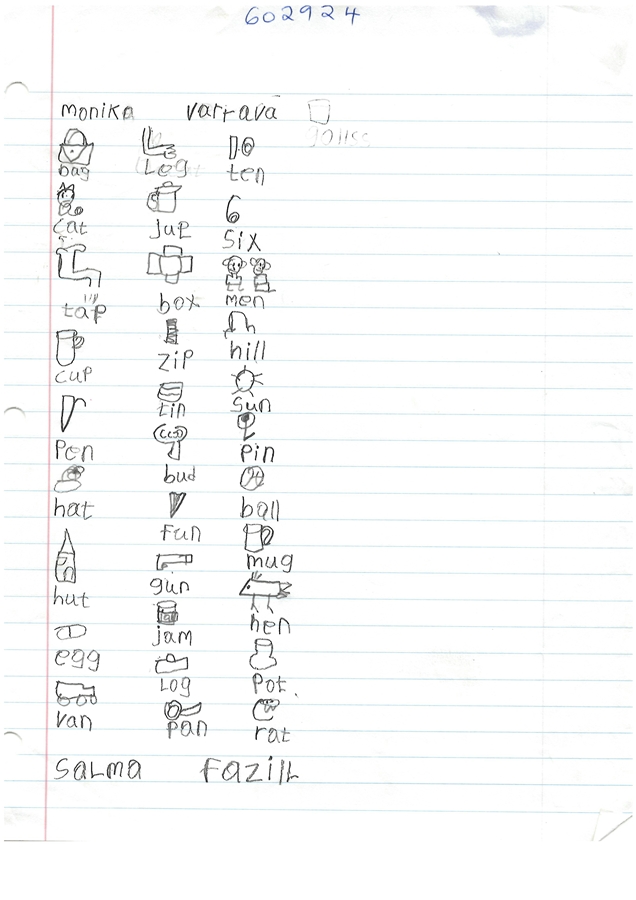 602924
monika varrava
bag Leg ten
cat jug six
tap box men
cup zip hill
tin sun
pen bud pin
hat fun ball
hut gun mug
jam hen
egg Log Pot.
van pan rat
SaLMa FaZiLL